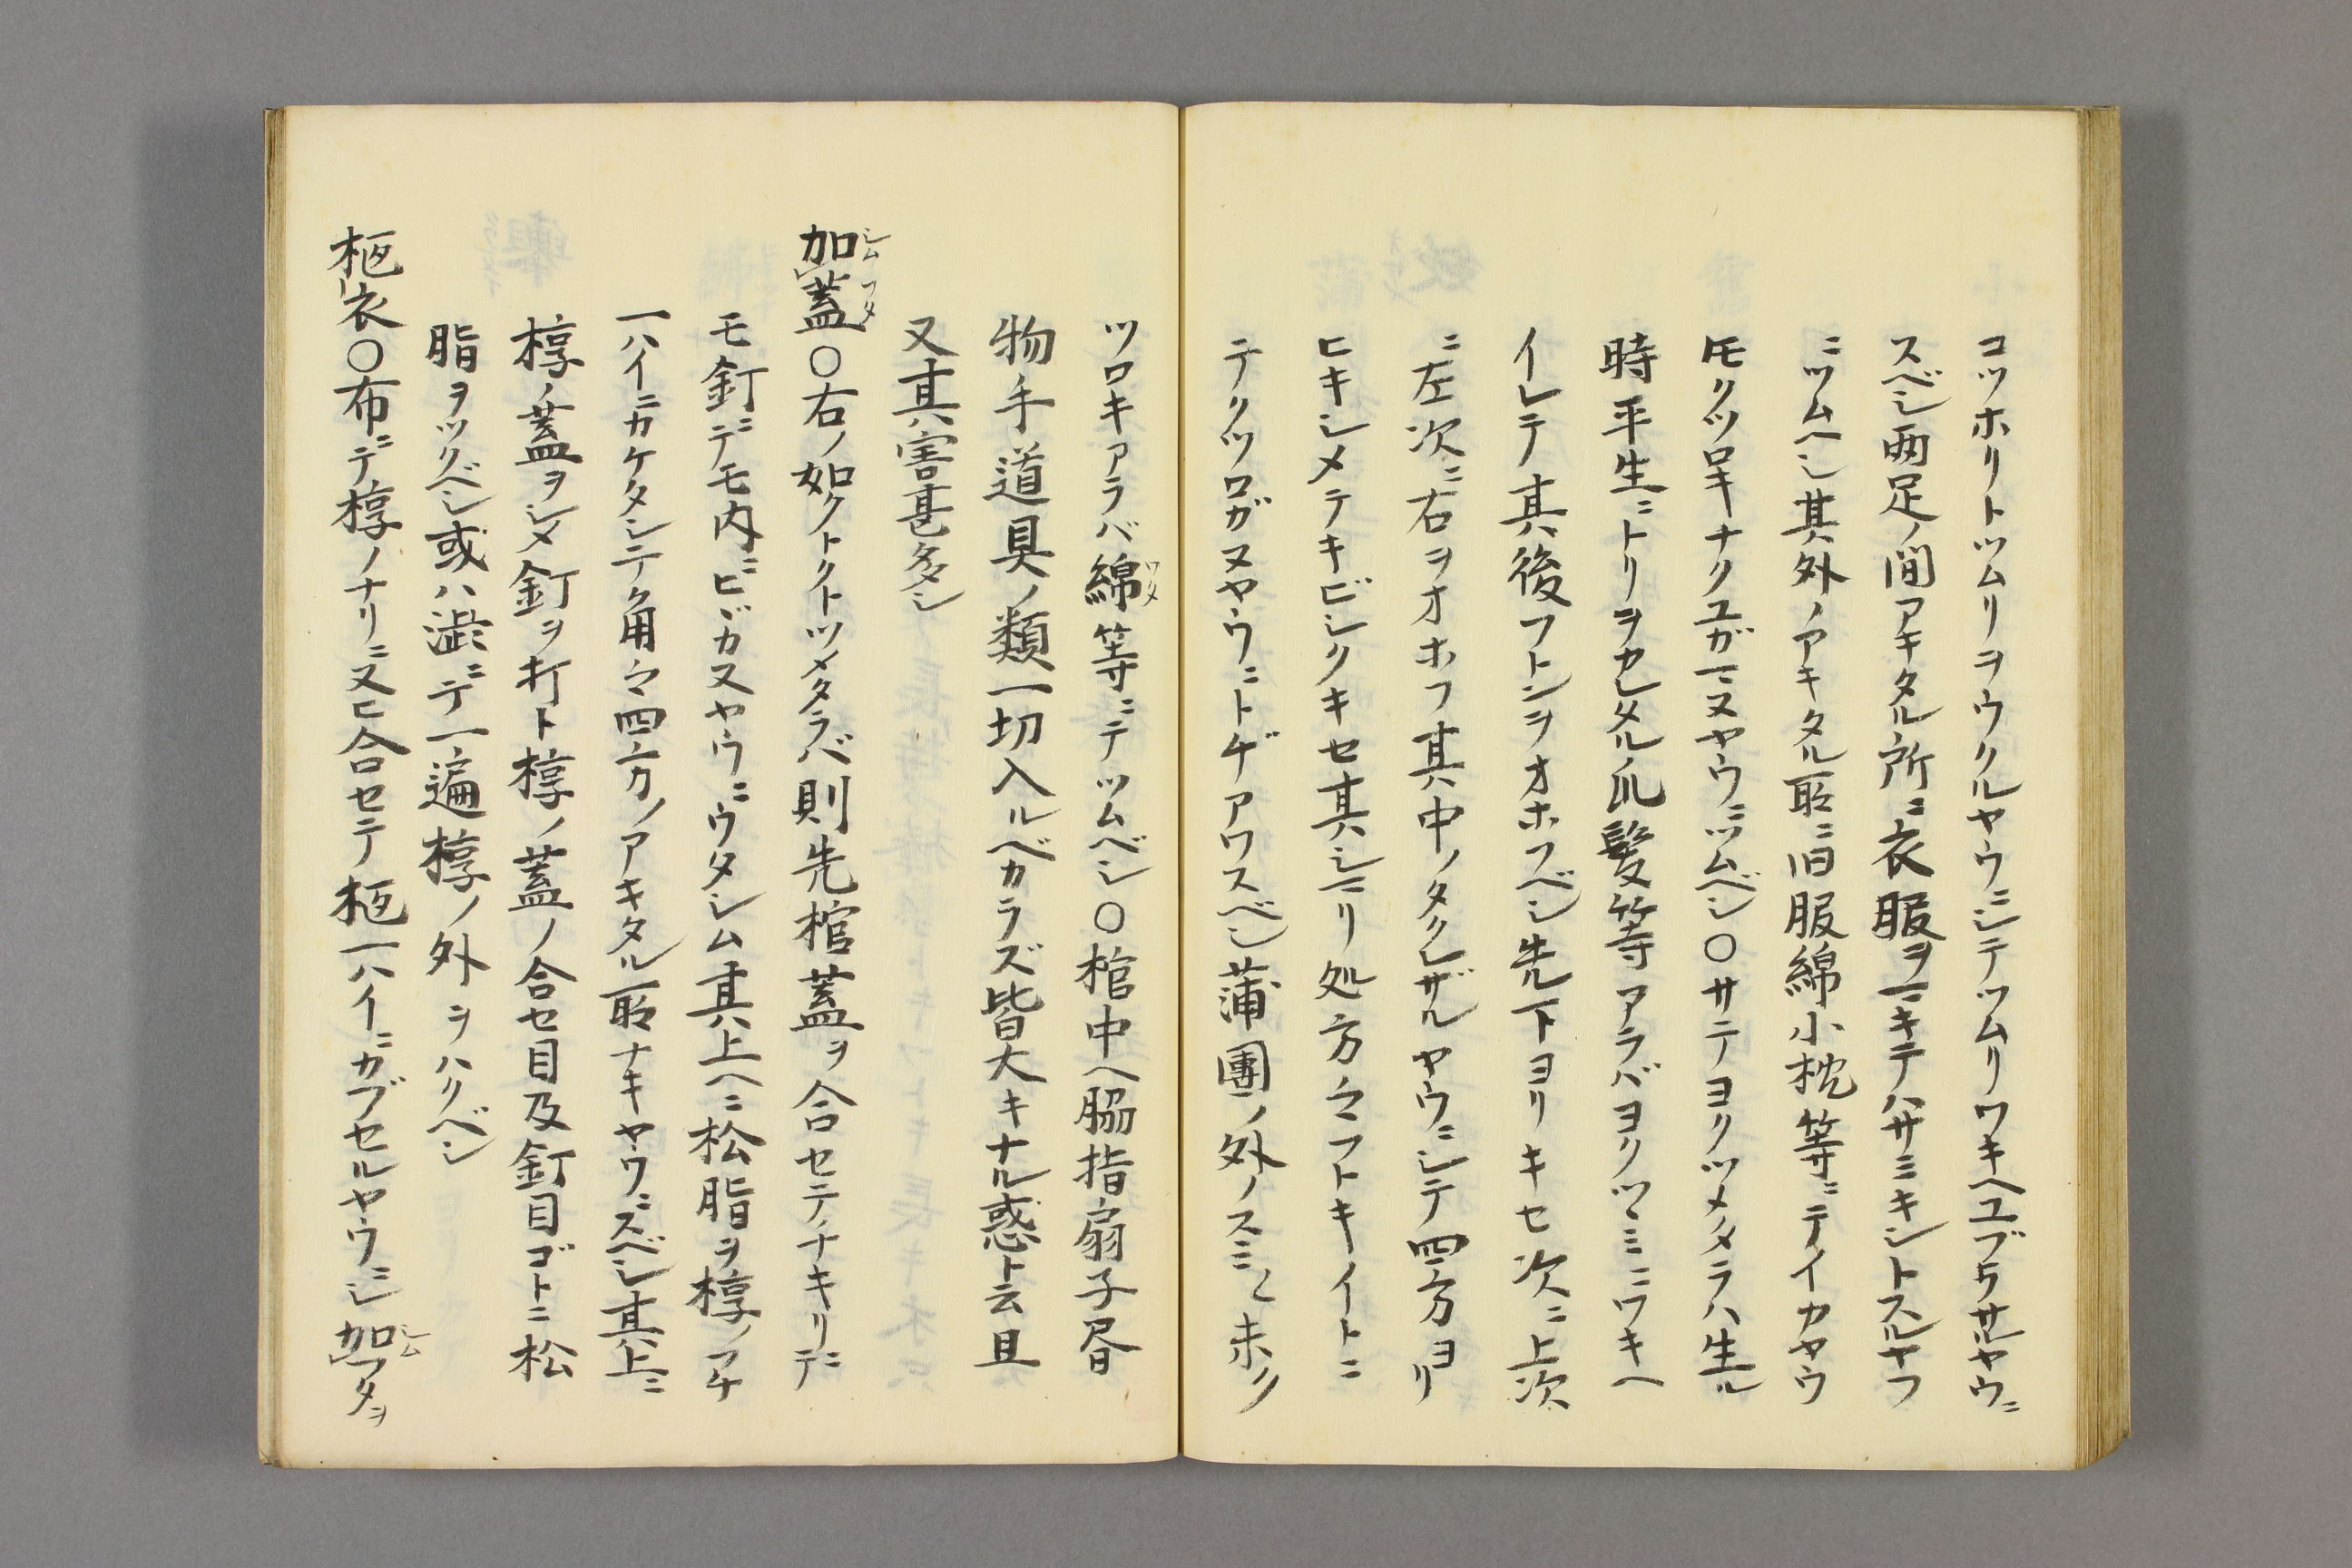 コツホリトツムリヲウクルヤウニシテツムリワキヘユブラサルヤウニ
スベシ両足ノ間アキタル所ニ衣服ヲマキテハサミキシトスルヤフ
ニツムヘシ其外ノアキタル所ニ旧服綿小枕等ニテイカヤウ
ニモクツロキナクユガマヌヤウニツムベシ○サテヨクツメタラハ生ル
時平生ニトリヲカレタル爪髪等アラバヨクツヽミニワキヘ
イレテ其後フトンヲオホフベシ先下ヨリキセ次ニ上次
ニ左次ニ右ヲオホフ其中ノタクレザルヤウニシテ四方ヨリ
ヒキシメテキビシクキセ其シマリ処方々フトキイトニ
テクツロガヌヤウニトヂアワスベシ蒲團ノ外ノスミ〱未ク
ツロキアラバ綿等ニテツムベシ○棺中ヘ脇指扇子昼
物手道具ノ類一切入ルベカラズ皆大キナル惑ト云且
又其害甚多シ
加蓋○右ノ如クトクトツメタラバ則先棺蓋ヲ合セテチキリニテ
モ釘ニテモ内ニヒヾカヌヤウニウタシム其上ヘニ松脂ヲ椁ノフチ
一ハイニカケタシテ角々四方ノアキタル所ナキヤウニスベシ其上ニ
椁ノ蓋ヲシメ釘ヲ打ト椁ノ蓋ノ合セ目及釘目ゴトニ松
脂ヲツクベシ或ハ澁ニテ一遍椁ノ外ヲハリベシ
柩衣○布ニテ椁ノナリニヌヒ合セテ柩一ハイニカブセルヤウニシ加フタヲ